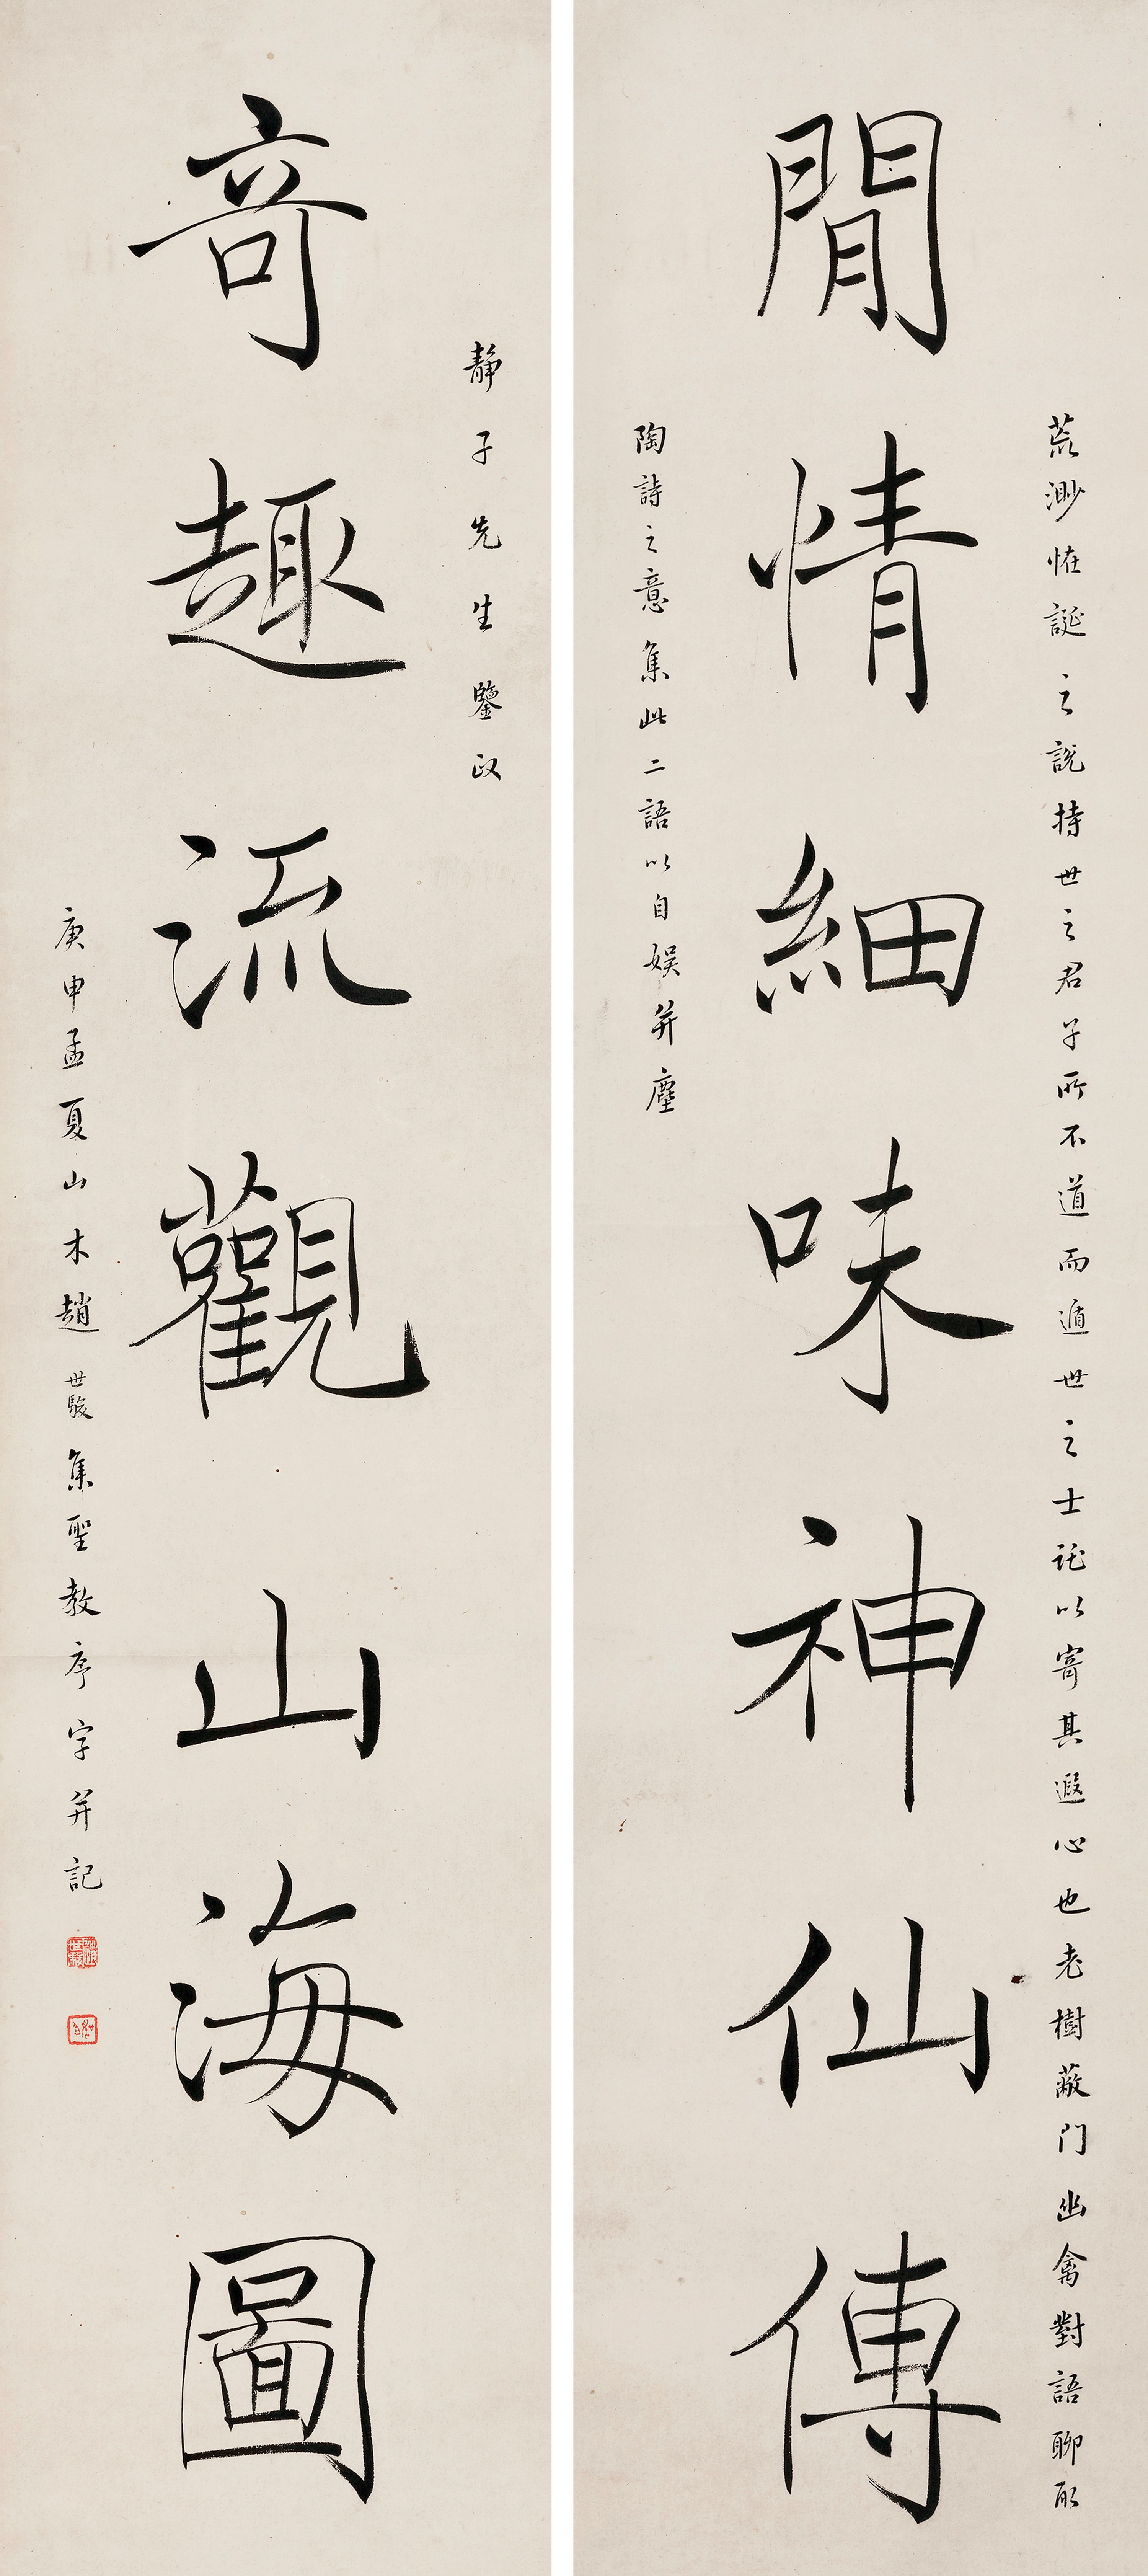 荒渺恠誕之說持世之君子所不道而遁世之士託以寄其遐心也老樹蔽门幽禽對語聊取
閒情細味神仙傳
陶詩之意集此二語以自娛并塵
靜子先生鑒政
奇趣流觀山海圖
庚申孟夏山木趙世駿集聖教序字并記